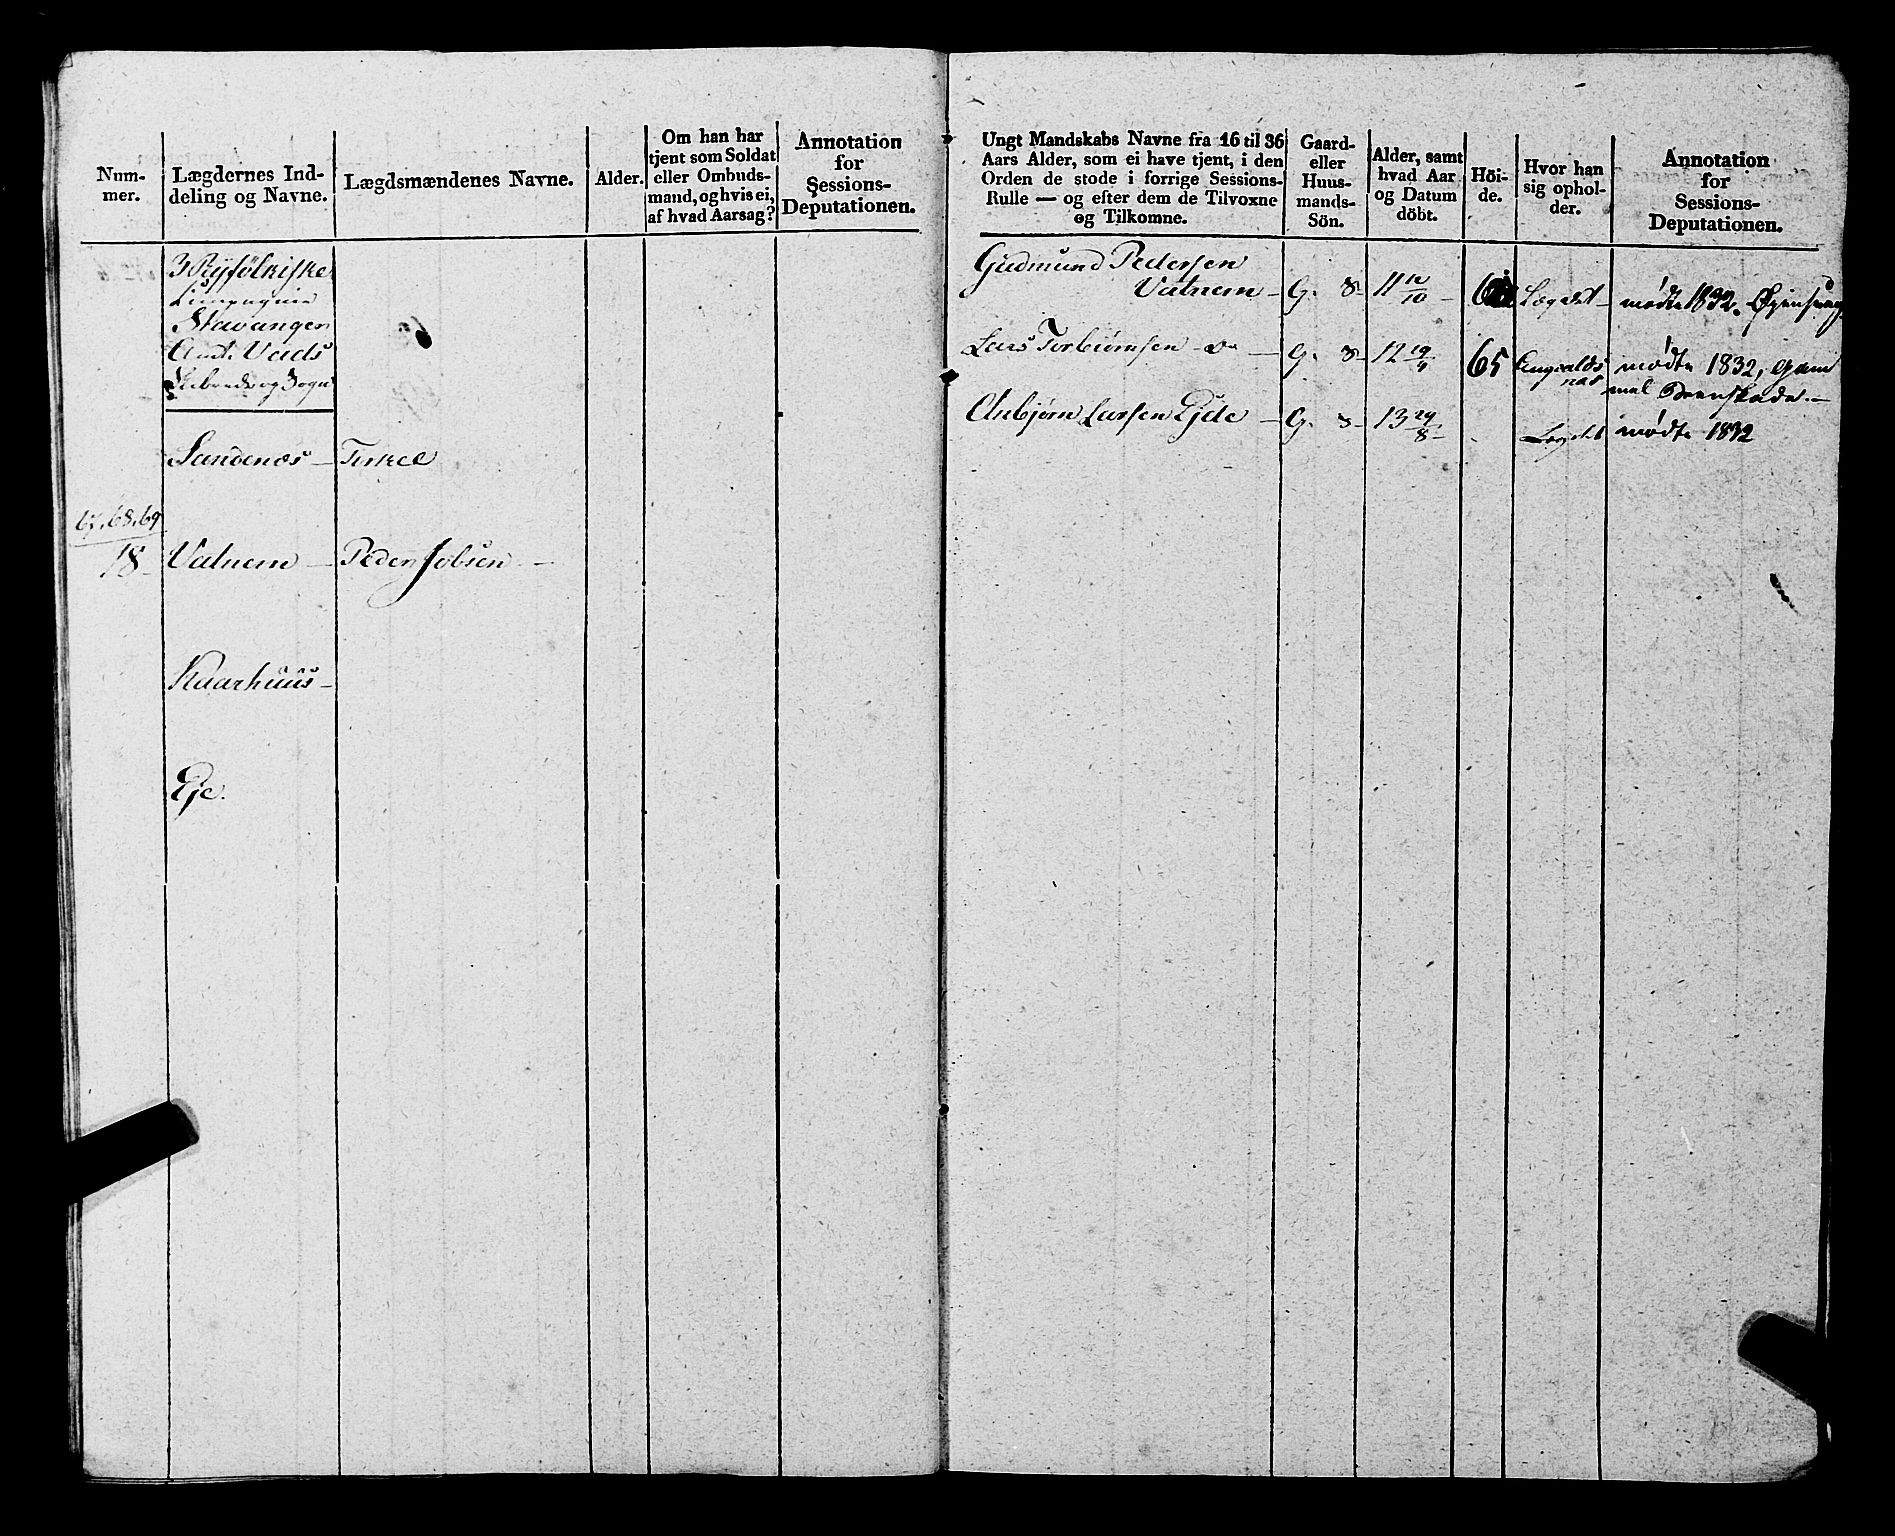 Num-
mer.
Lægdernes Ind-
deling og Navne.
Lægdsmændenes Navne.
Alder.
Om han har
tjent som Soldat
eller Ombuds-
mand, og hvis ei,
af hvad Aarsag?
Annotation
for
Sessions-
Deputationen.
3 Ryfølkiske
Compagnie
Stavanger
Amt. Vads
Sandenæs – Torkel
67,68,69
18 Vatnem – Peder Jobsen –
Kaarhuus –
Eje.
Ungt Mandskabs Navne fra 16 til 36
Aars Alder, som ei have tjent, i den
Orden de stode i forrige Sessions-
Rulle — og efter dem de Tilvoxne
og Tilkomne.
Gaard-
eller
Huus-
mands-
Sön.
Alder, samt
hvad Aar
og Datum
döbt.
Höi-
de.
Hvor han
sig ophol-
der.
Annotation
for
Sessions-
Deputationen.
Gudmund Pedersen
Vatnem – G. S – 11 12/10 – Lægdet – mødte 1832.
Lars Torbiørnsen – G. S – 12 19/4 65 mødte 1832, gam
mel Beenskade. –
Aubjørn Larsen Ejde – G. S – 13 29/8 – Lægdet mødte 1832